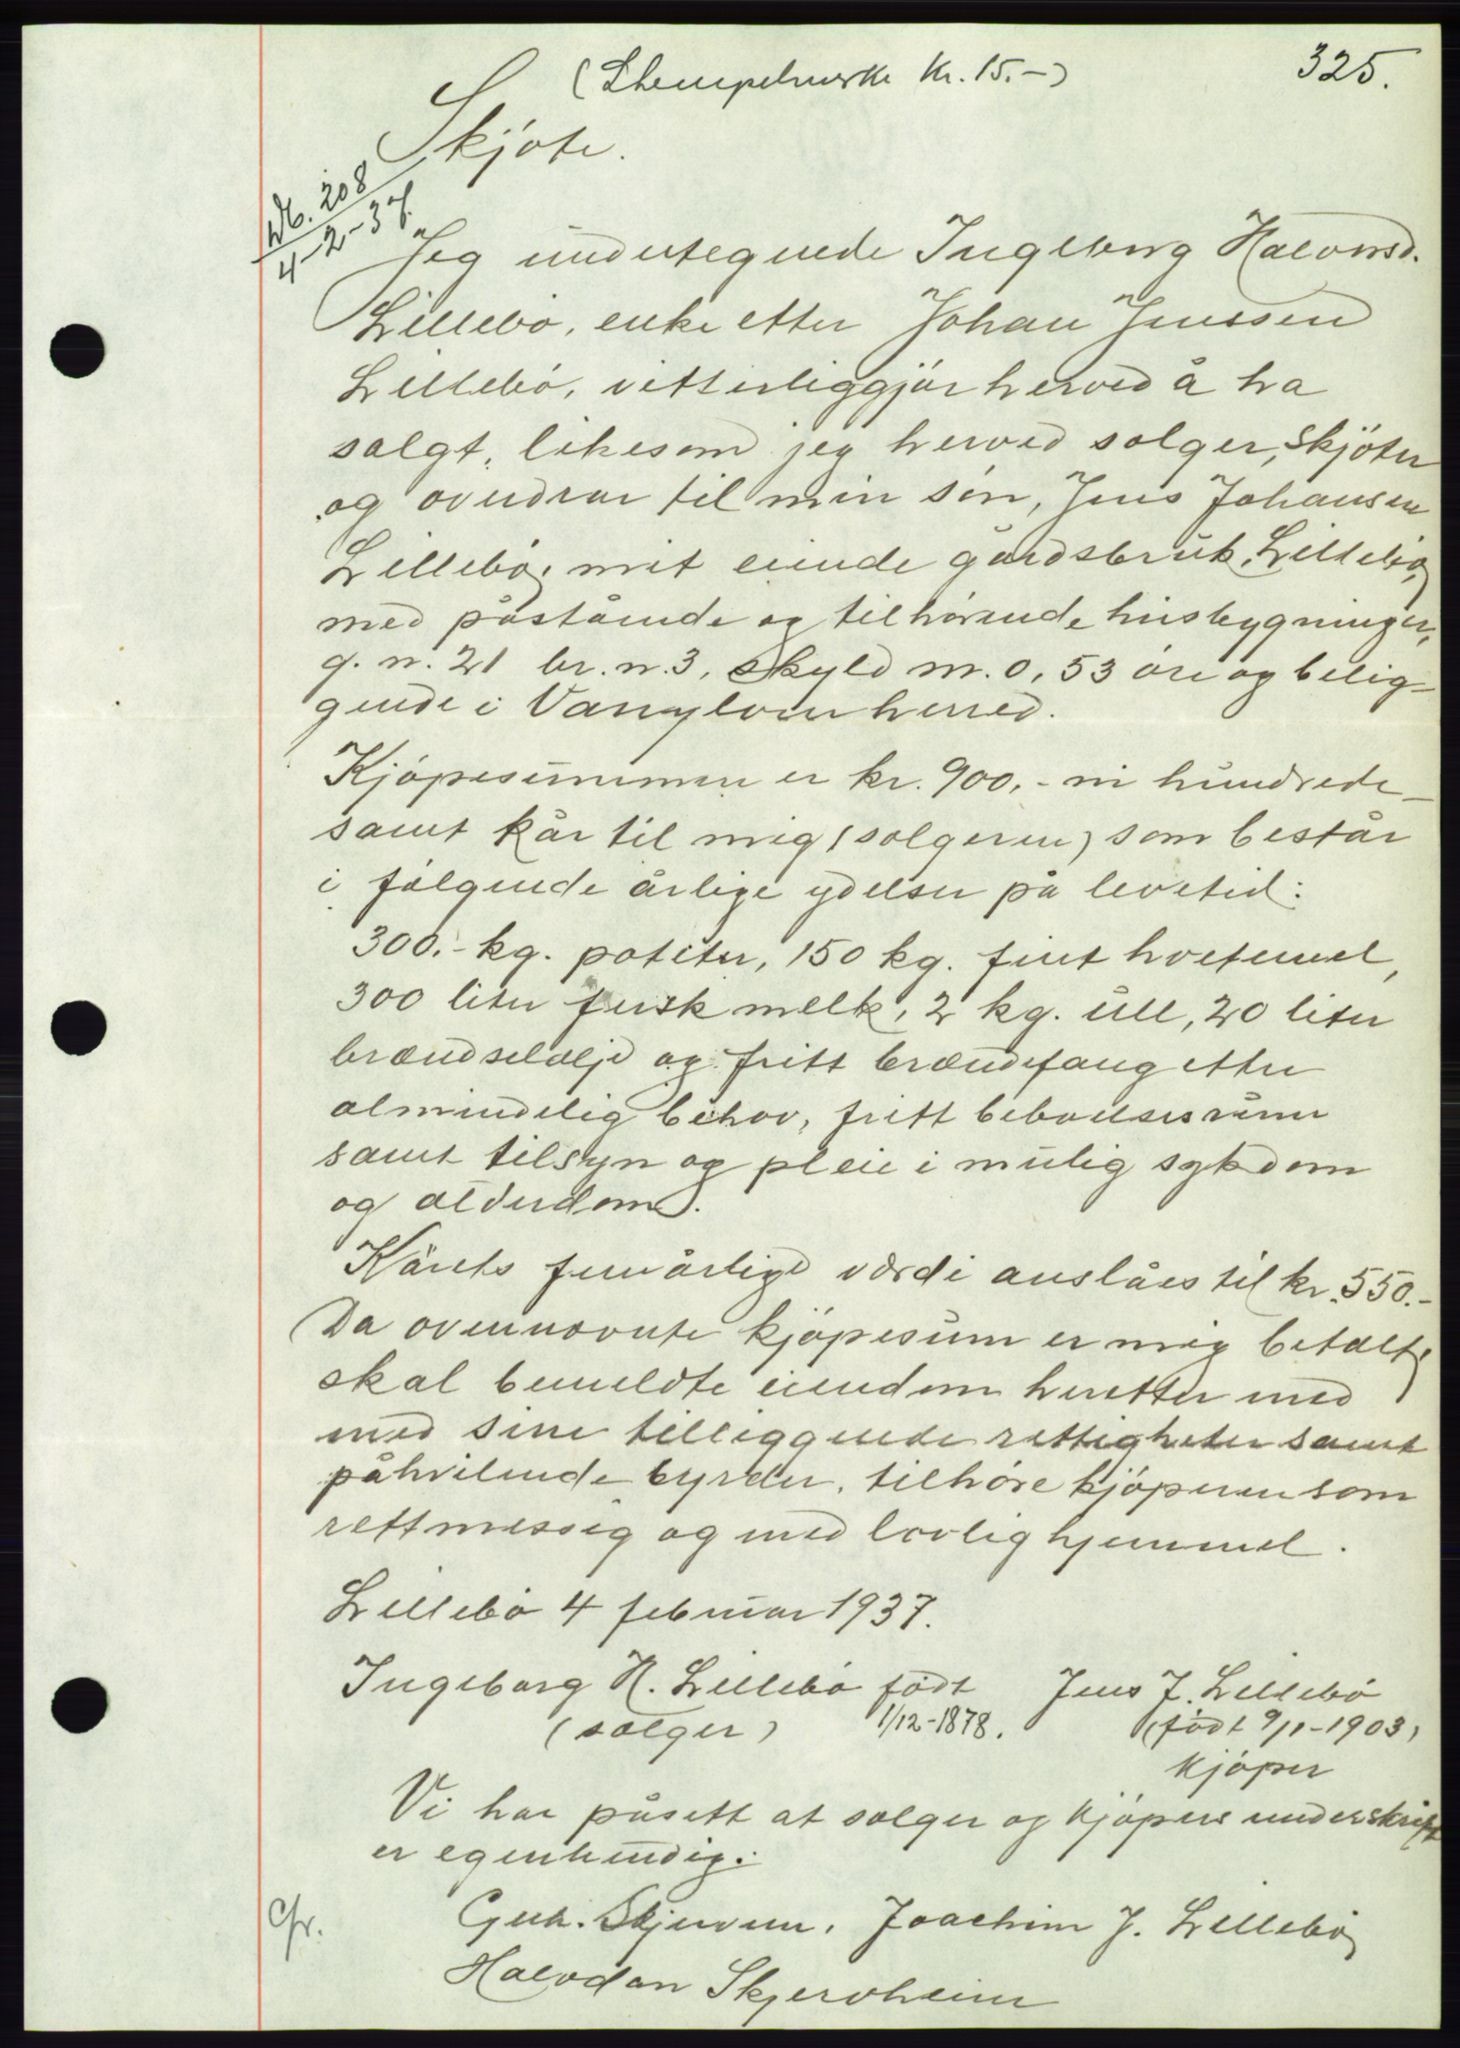 325.
(Stempelmerke kr. 15.-)
Skjøte.
Db. 208
4-2-37.
Jeg undertegnede Ingeborg Halvorsd.
Lillebø, enke etter Johan Jenssen
Lillebø, vitterliggjør herved å ha
solgt, likesom jeg herved selger, skjøter
og overdrar til min søn, Jens Johansen
Lillebø, mit eiende gårdsbruk, Lillebø,
med påstående og tilhørende husbygninger,
g. n. 21 br. n. 3, skyld m. 0,53 øre og belig-
gende i Vanylven herred.
Kjøpesummen er kr. 900,- ni hundrede -
samt kår til mig (selgeren) som består
i følgende årlige ydelser på levetid:
300.- kg. poteter, 150 kg. fint hvetemel,
300 liter fersk melk, 2 kg. ull, 20 liter
brændselolje og fritt brændefang etter
almindelig behov, fritt beboelsesrum
samt tilsyn og pleie i mulig sykdom
og alderdom.
Kårets femårlige verdi anslåes til kr. 550.-
Da ovennevnte kjøpesum er mig betalt,
skal bemeldte eiendom heretter med
med sine tilliggende rettigheter samt
påhvilende byrder, tilhøre kjøperen som
rettmessig og med lovlig hjemmel.
Lillebø 4 februar 1937.
Ingeborg H. Lillebø født Jens J. Lillebø
(selger) 1/12-1878. (født 9/1-1903)
kjøper
Vi har påsett at selger og kjøpers underskrift
er egenhendig:
Skjerven. Joachim J. Lillebø
Halvdan Skjervheim